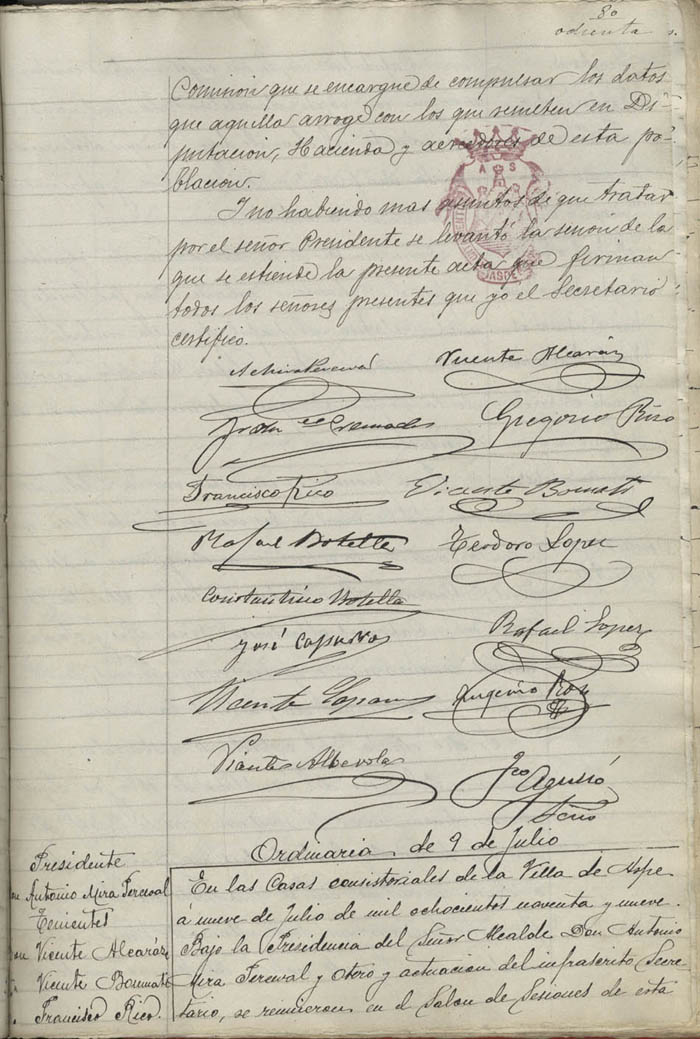 80
ochenta
Comision que se encargue de compulsar los datos
que aquella arroge con los que remeten en Di-
putacion, Hacienda y acreedores de esta po-
blacion.
I no habiendo mas asuntos de que tratar
por el señor Presidente se levantó la sesion de la
que se estiende la presente acta que firman
todos los señores presentes que yo el Secretario
certifico.
A. Mira Perceval
Vicente Alcaráz
Cremades
Gregorio Rizo
Francisco Rico
Vicente Bonmati
Rafael Botella
Teodoro Lopez
Constantino Botella
José Caparros
Rafael Lopez
Vicente
Eugenio
Vicente Alberola
Fco Agulló
Srio
Ordinaria de 9 de Julio
Presidente
Antonio Mira Perceval
Tenientes
Vicente Alcaráz
Vicente Bonmati
Francisco Rico.
En las Casas consistoriales de la Villa de Aspe
á nueve de Julio de mil ochocientos noventa y nueve.
Bajo la Presidencia del Señor Alcalde Don Antonio
Mira Perceval y Otero y actuacion del infrascrito Secre-
tario, se reunieron en el Salon de Sesiones de esta